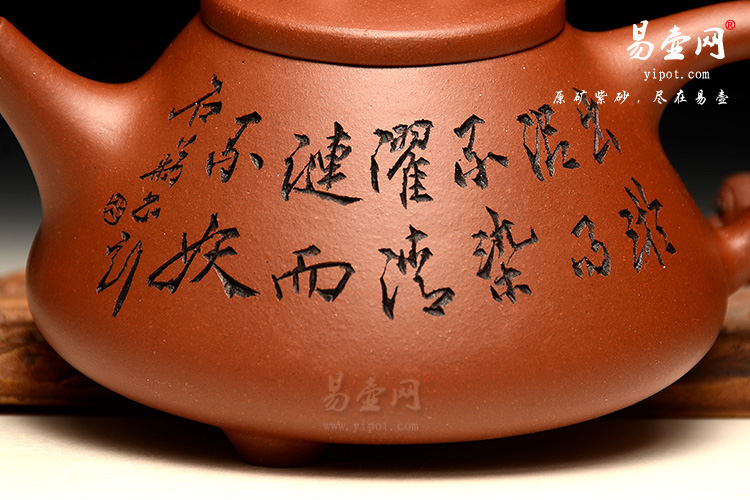 易壶网®
yipot.com
原矿紫砂，尽在易壶
出淤
泥而
不染
濯清
漣而
不妖
易壶网
www.yipot.com